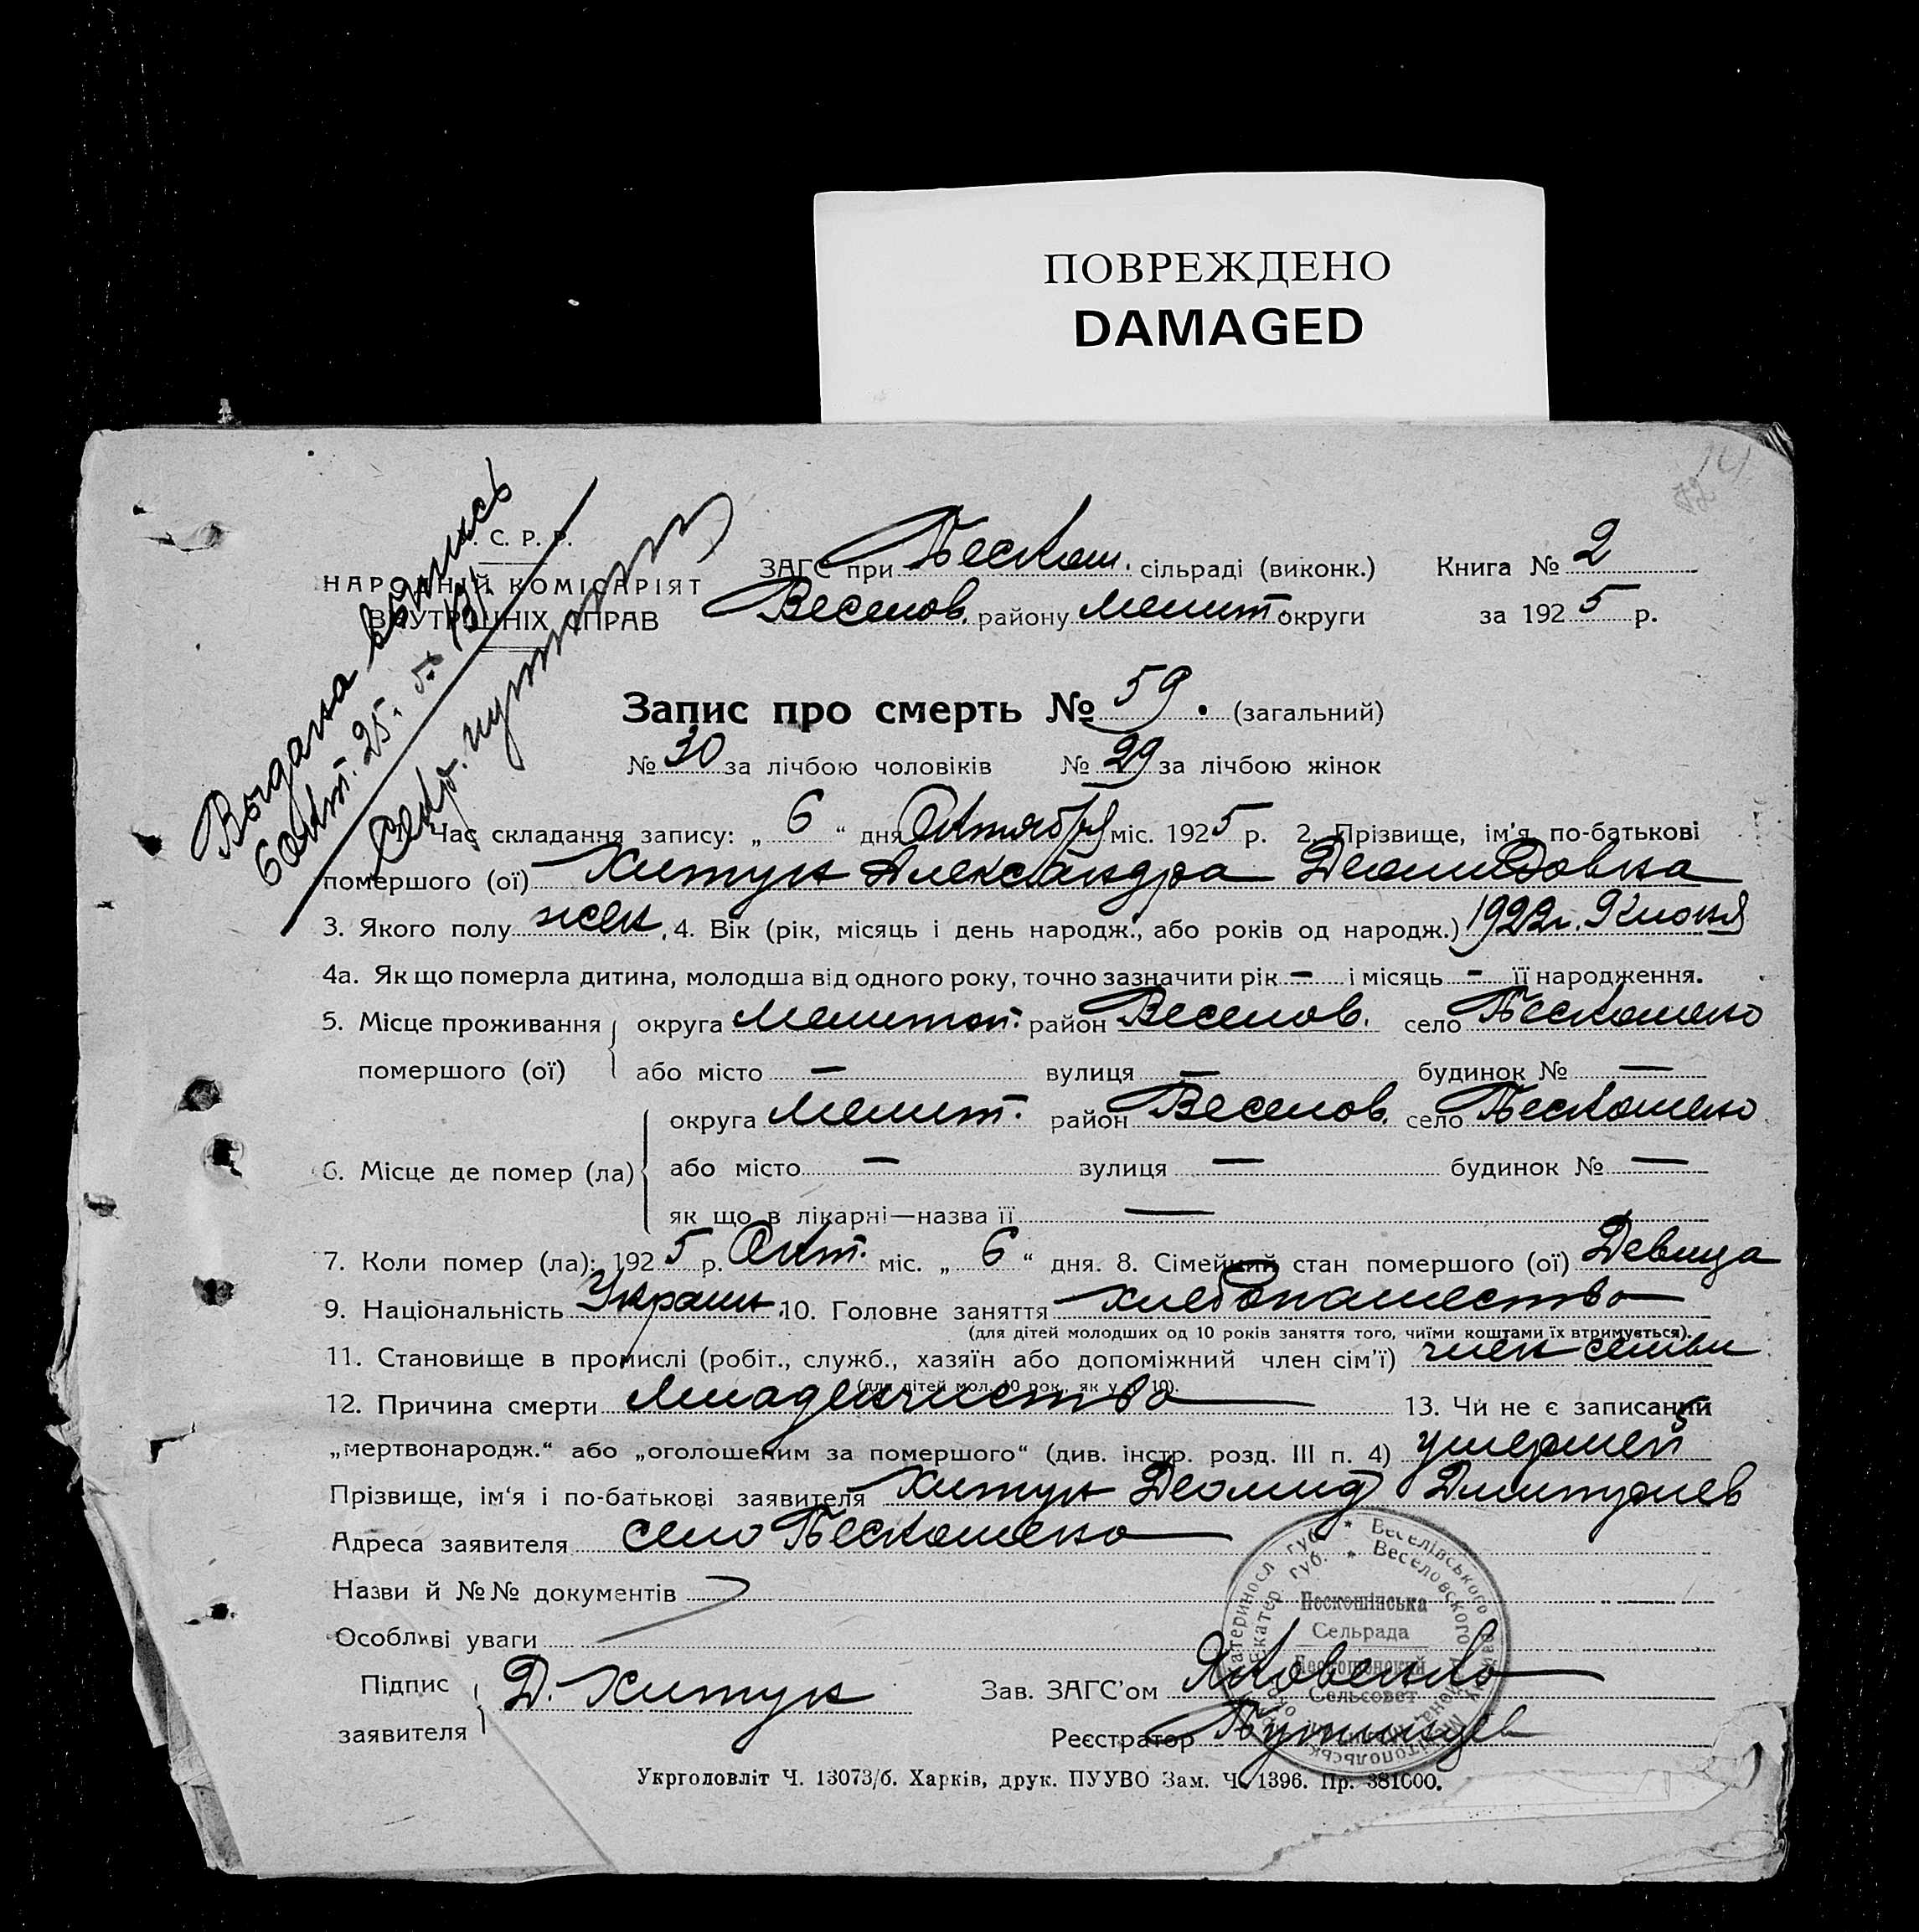 ПОВРЕЖДЕНО
DAMAGED
С. Р. Р.
НАРОДНІЙ КОМІСАРІЯТ
ВНУТРІШНІХ СПРАВ
Выдана выпись
6 окт. 25.
Секр.
ЗАГС при Пескош. сільраді (виконк.) Книга № 2
Веселов. району Мелит округи за 1925 р.
Запис про смерть № 59. (загальний)
№ 30 за лічбою чоловіків № 29 за лічбою жінок
Час складання запису: „ 6 “ дня Октября міс. 1925 р. 2. Прізвище, ім'я, по-батькові
помершого (ої) Хитук Александра Деомидовна
3. Якого полу жен, 4. Вік (рік, місяць і день народж., або років од народж.) 1922 г. 9 июня
4а. Як що померла дитина, молодша від одного року, точно зазначити рік – і місяць – її народження.
5. Місце проживання округа Мелитоп. район Веселов. село Пескошено
помершого (ої) або місто — вулиця — будинок № —
округа Мелит. район Веселов. село Пескошено
6. Місце де помер (ла) або місто — вулиця — будинок № —
як що в лікарні—назва її —
7. Коли помер (ла): 1925 р. Окт. міс. „ 6 “ дня. 8. Сімейний стан помершого (ої) Девица
9. Національність Украин. 10. Головне заняття хлебопашество
(для дітей молодших од 10 років заняття того, чиїми коштами їх втримується).
11. Становище в промислі (робіт., служб., хазяїн або допоміжний член сім'ї) член семьи
(для дітей мол. 10 рок., як у п. 10).
12. Причина смерти Младенчество 13. Чи не є записаний
„мертвонародж.“ або „оголошеним за помершого“ (див. інстр. розд. III п. 4) умершей
Прізвище, ім'я і по-батькові заявителя Хитук Деомид Дмитриев
Адреса заявителя село Пескошено
Назви й №№ документів
Особливі уваги
Підпис Д. Хитук Зав. ЗАГС'ом Яковенко
заявителя Реєстратор
Катериносл губ. * Веселівського району Мелітопольськ
Екатер. губ. * Веселовского района
Пескошінська
Сельрада
Пескошенский
Сельсовет
Укрголовліт Ч. 13073/б. Харків, друк. ПУУВО Зам. Ч. 1396. Пр. 381000.